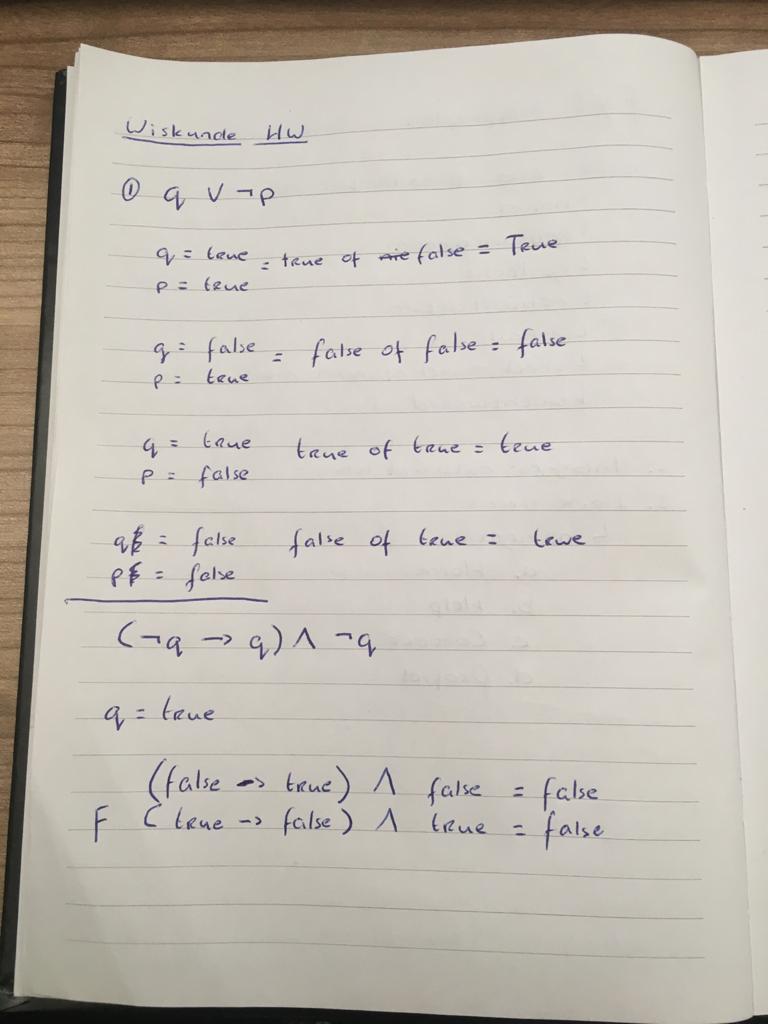 Wiskunde HW
① q ∨ ¬p
q = true = true of false = True
p = true
q = false = false of false = false
p = true
q = true true of true = true
p = false
q = false false of true = true
p = false
(¬q → q) ∧ ¬q
q = true
(false -> true) ∧ false = false
F (true -> false) ∧ true = false